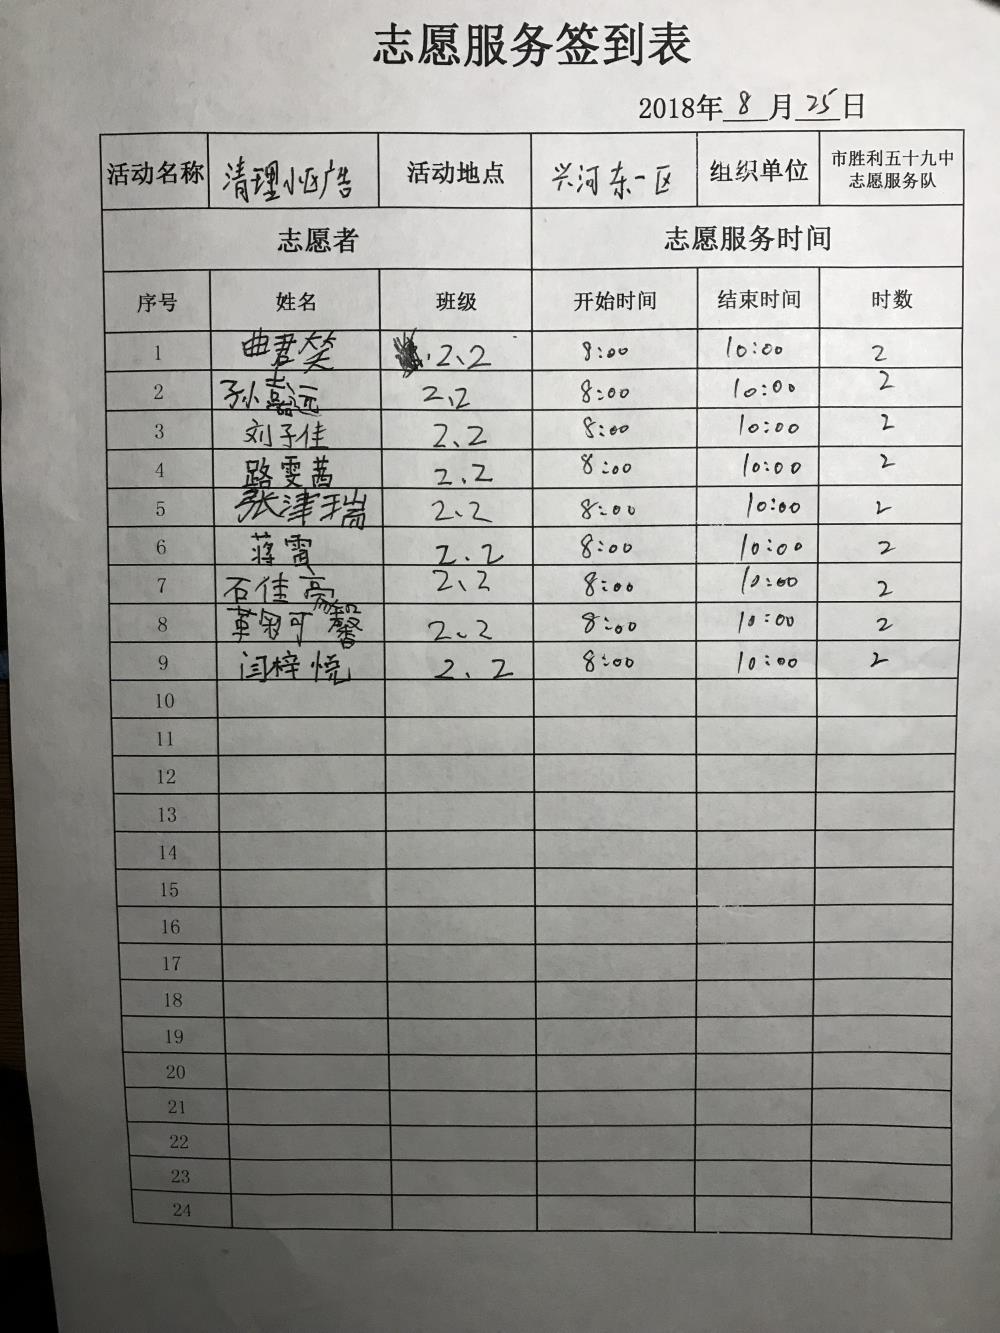 志愿服务签到表
2018年8月25日
活动名称 清理小区广告 活动地点 兴河东一区 组织单位 市胜利五十九中志愿服务队
志愿者 志愿服务时间
序号 姓名 班级 开始时间 结束时间 时数
1 曲君笑 2、2 8:00 10:00 2
2 孙嘉远 2、2 8:00 10:00 2
3 刘子佳 2、2 8:00 10:00 2
4 路雯茜 2、2 8:00 10:00 2
5 张津瑞 2、2 8:00 10:00 2
6 蒋霄 2、2 8:00 10:00 2
7 石佳亮 2、2 8:00 10:00 2
8 可馨 2、2 8:00 10:00 2
9 闫梓悦 2、2 8:00 10:00 2
10
11
12
13
14
15
16
17
18
19
20
21
22
23
24